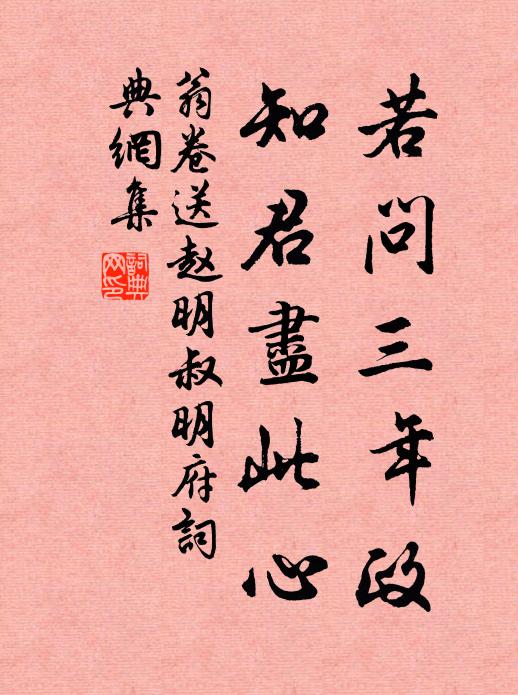 若问三年政
知君盡此心
翁卷送赵明叔明府詞
典網集
詞典
网印